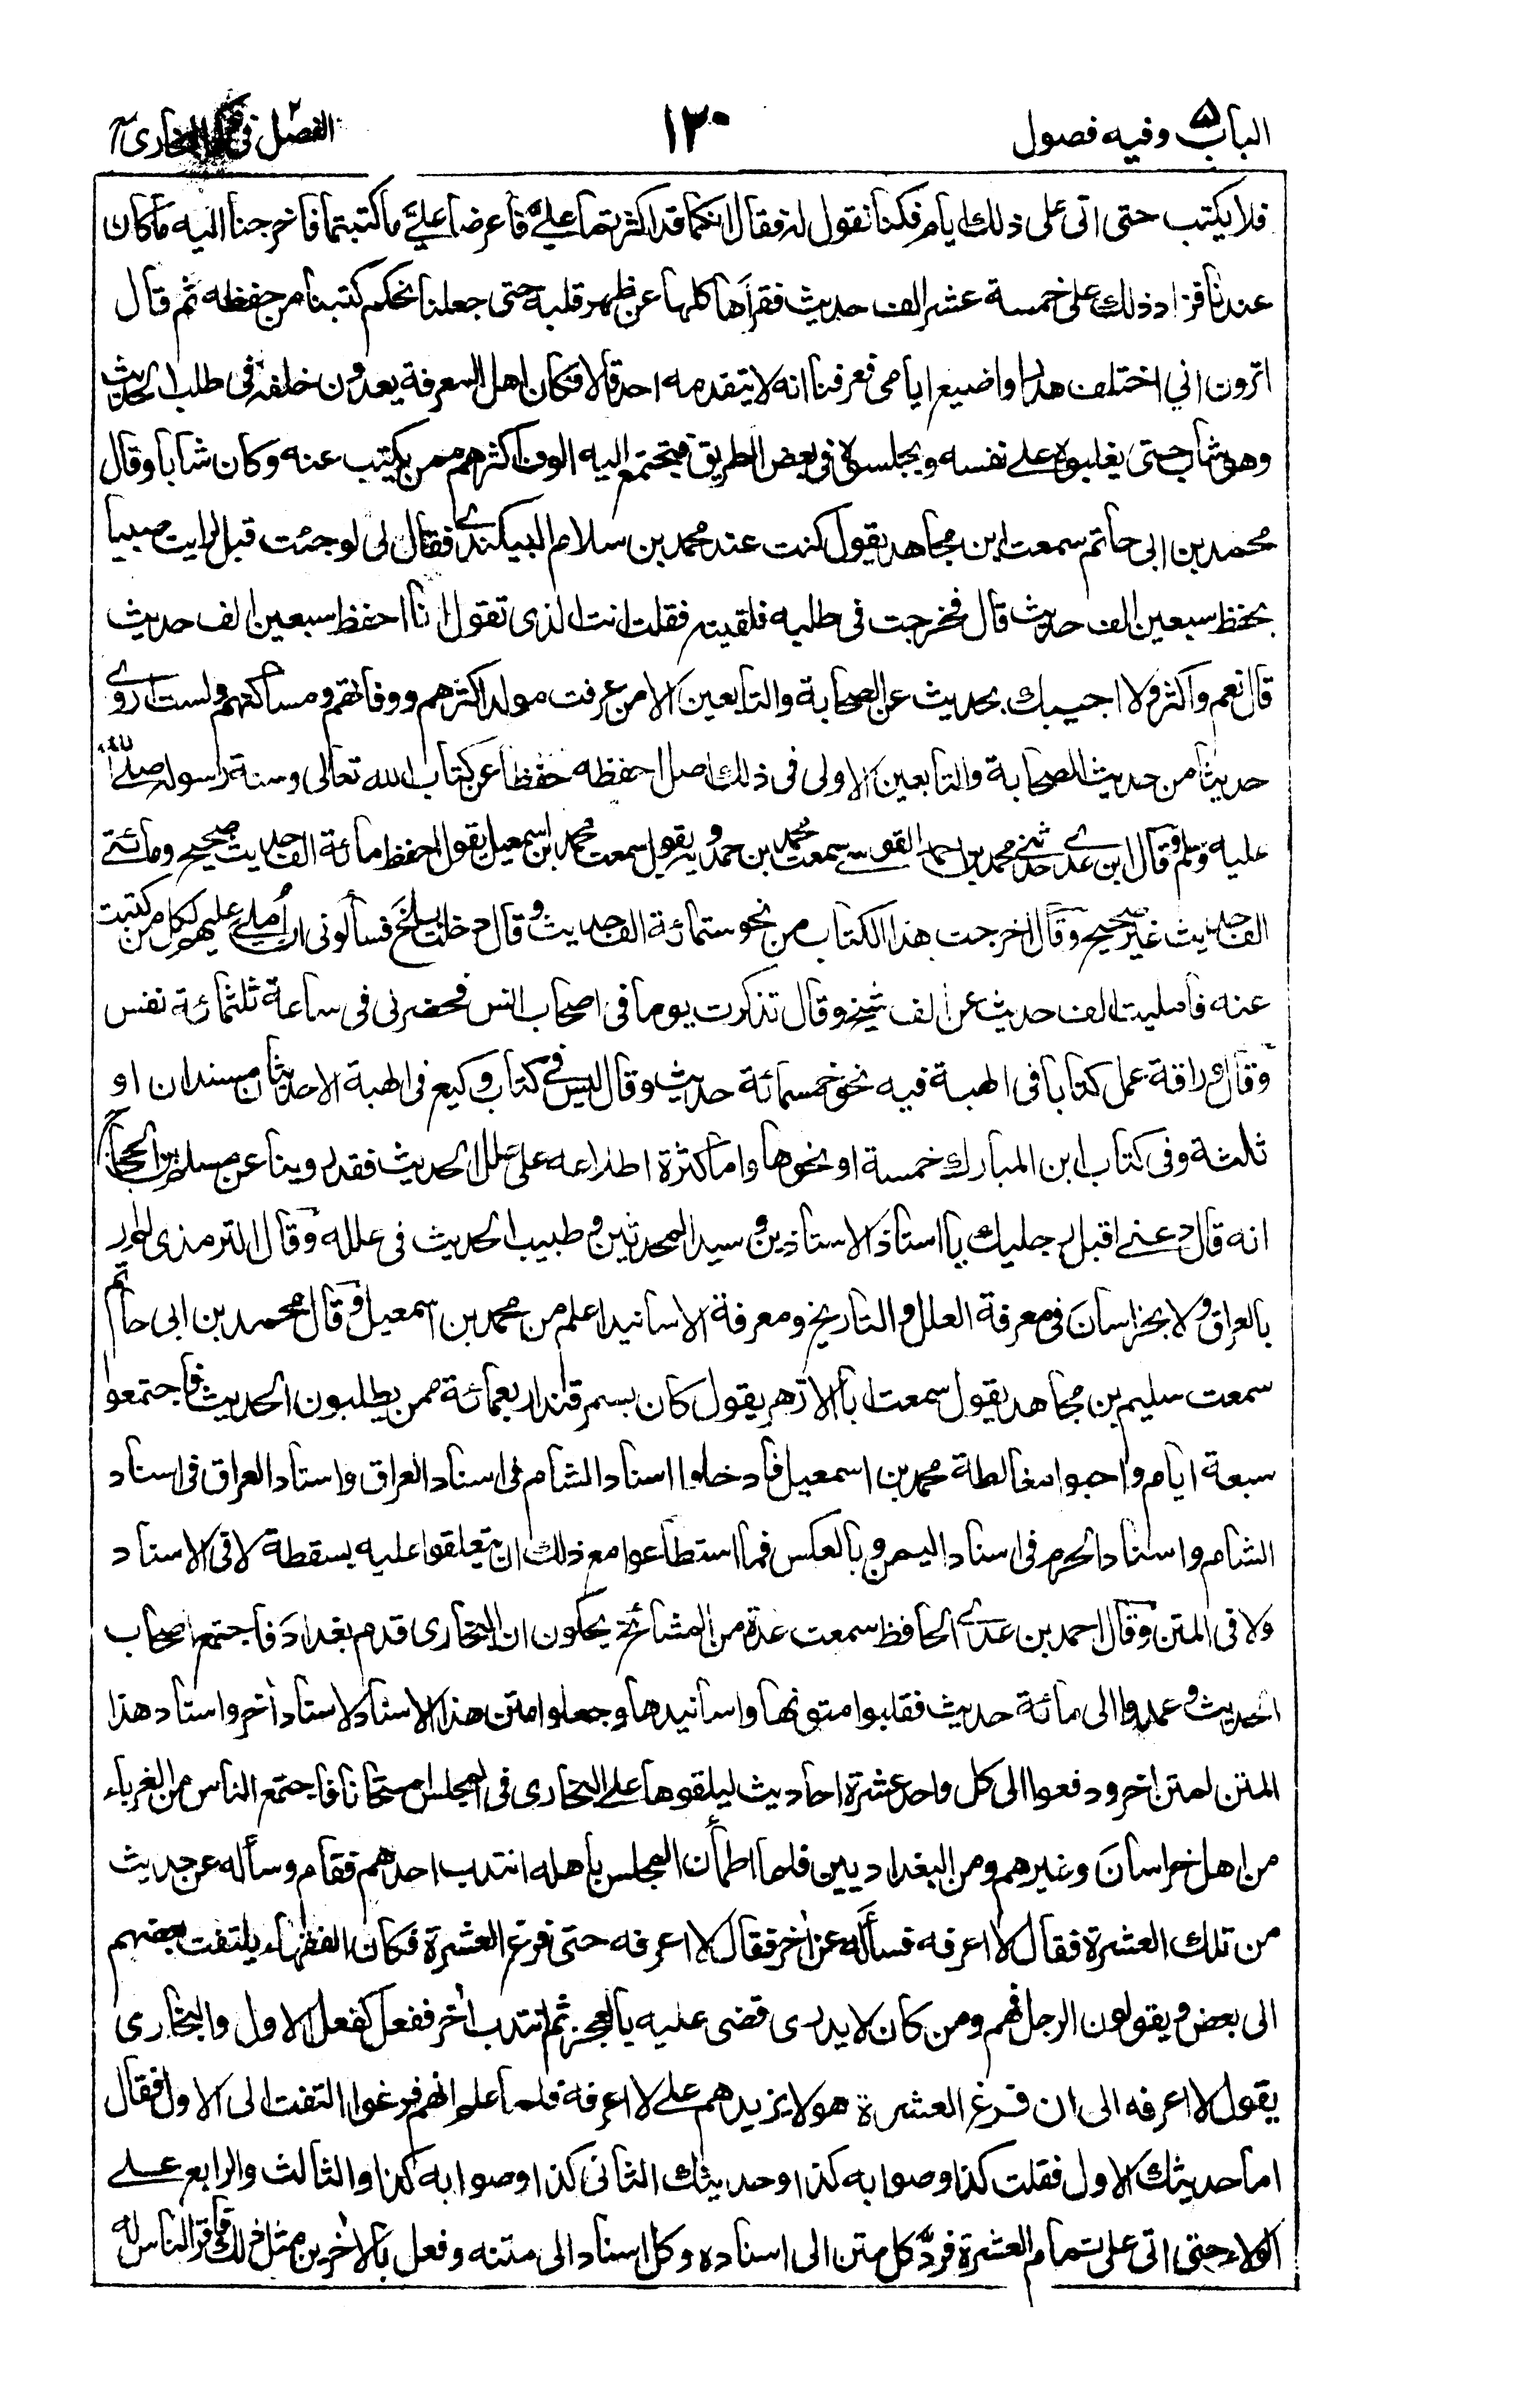 الباب ٥ وفيه فصول
١٢٠
الفصل ٢ في البخاري
فلا يكتب حتى اتى على ذلك ايام فكنا نقول له فقال انكما قد اكثرتما عليَّ فأعرضا عليَّ ما كتبتما فاخرجنا اليه ما كان
عندنا فزاد ذلك على خمسة عشر الف حديث فقرأها كلها عن ظهر قلبه حتى جعلنا نحكم كتبنا من حفظه ثم قال
اترون اني اختلف هدرا واضيع ايامي فعرفنا انه لا يتقدمه احد قالا فكان اهل المعرفة يعدون خلفه في طلب الحديث
وهو شاب حتى يغلبوه على نفسه ويجلسوه في بعض الطريق فيجتمع اليه الوف اكثرهم ممن يكتب عنه وكان شابا وقال
محمد بن ابي حاتم سمعت ابن مجاهد يقول كنت عند محمد بن سلام البيكندي فقال لي لو جئت قبل لرايت صبيا
يحفظ سبعين الف حديث قال فخرجت في طلبه فلقيته فقلت انت الذي تقول انا احفظ سبعين الف حديث
قال نعم واكثر ولا اجيبك بحديث عن الصحابة والتابعين الا من عرفت مولد اكثرهم ووفاتهم ومساكنهم ولست اروي
حديثا من حديث الصحابة والتابعين الا ولى في ذلك اصل احفظه حفظا عن كتاب الله تعالى وسنة رسوله صلى الله
عليه وسلم وقال ابن عدي حدثني محمد بن احمد القومسي سمعت محمد بن حمدويه يقول سمعت محمد ابن اسمعيل يقول احفظ مائة الف حديث صحيح ومائتي
الف حديث غير صحيح وقال اخرجت هذا الكتاب من نحو ستمائة الف حديث وقال دخلت بلخ فسألوني ان أملي عليهم لكل من كتبت
عنه فأمليت الف حديث عن الف شيخ وقال تذكرت يوما في اصحاب انس فحضرني في ساعة ثلثمائة نفس
وقال وراقه عمل كتابا في الهبة فيه نحو خمسمائة حديث وقال ليس في كتاب وكيع في الهبة الا حديثان مسندان او
ثلثة وفي كتاب ابن المبارك خمسة او نحوها واما كثرة اطلاعه على علل الحديث فقد روينا عن مسلم بن الحجاج
انه قال دعني اقبل رجليك يا استاذ الاستاذين وسيد المحدثين وطبيب الحديث في علله وقال الترمذي لم ار
بالعراق ولا بخراسان في معرفة العلل والتاريخ ومعرفة الاسانيد اعلم من محمد بن اسمعيل وقال محمد بن ابي حاتم
سمعت سليم بن مجاهد يقول سمعت ابا الازهر يقول كان بسمرقند اربعمائة ممن يطلبون الحديث فاجتمعوا
سبعة ايام واحبوا مغالطة محمد بن اسمعيل فادخلوا اسناد الشام في اسناد العراق واسناد العراق في اسناد
الشام واسناد الحرم في اسناد اليمن وبالعكس فما استطاعوا مع ذلك ان يتعلقوا عليه بسقطة لا في الاسناد
ولا في المتن وقال احمد بن عدي الحافظ سمعت عدة من المشائخ يحكون ان البخاري قدم بغداد فاجتمع اصحاب
الحديث وعمدوا الى مائة حديث فقلبوا متونها واسانيدها وجعلوا متن هذا الاسناد لاسناد أخر واسناد هذا
المتن لمتن اخر ودفعوا الى كل واحد عشرة احاديث ليلقوها على البخاري في المجلس امتحانا فاجتمع الناس من الغرباء
من اهل خراسان وغيرهم ومن البغداديين فلما اطمأن المجلس باهله انتدب احدهم فقام وسأله عن حديث
من تلك العشرة فقال لا اعرفه فسأله عن أخر فقال لا اعرفه حتى فرغ العشرة فكان الفقهاء يلتفت بعضهم
الى بعض ويقولون الرجل فهم ومن كان لا يدرى قضى عليه بالعجز ثم انتدب أخر ففعل كفعل الاول والبخاري
يقول لا اعرفه الى ان فرغ العشرة هو لا يزيدهم على لا اعرفه فلما علم انهم فرغوا التفت الى الاول فقال
اما حديثك الاول فقلت كذا وصوابه كذا وحديثك الثاني كذا وصوابه كذا والثالث والرابع على
الولاء حتى اتى على تمام العشرة فردّ كل متن الى اسناده وكل اسناد الى متنه وفعل بالأخرين مثل ذلك فاقر الناس له